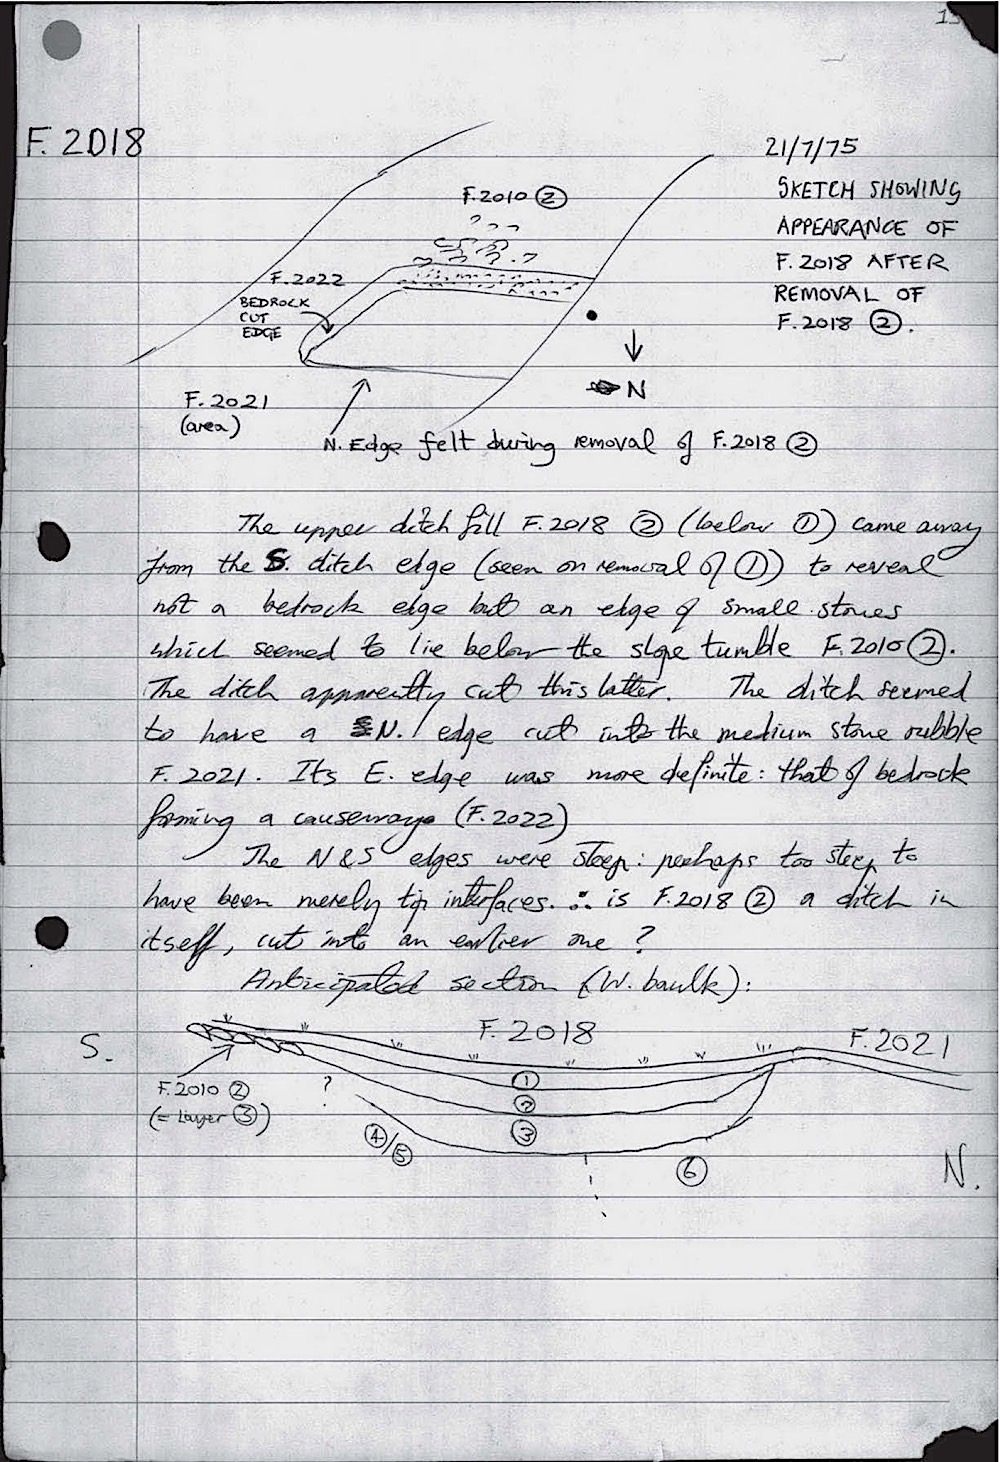 13
F. 2018
21/7/75
SKETCH SHOWING
APPEARANCE OF
F. 2018 AFTER
REMOVAL OF
F. 2018 ②.
F. 2010 ②
F. 2022
BEDROCK
CUT
EDGE
N
F. 2021
(area)
N. Edge felt during removal of F. 2018 ②
The upper ditch fill F. 2018 ② (below ①) came away
from the S. ditch edge (seen on removal of ①) to reveal
not a bedrock edge but an edge of small stones
which seemed to lie below the slope tumble F. 2010 ②.
The ditch apparently cut this latter. The ditch seemed
to have a N. edge cut into the medium stone rubble
F. 2021. Its E. edge was more definite: that of bedrock
forming a causeway (F. 2022)
The N & S edges were steep: perhaps too steep to
have been merely tip interfaces. ∴ is F. 2018 ② a ditch in
itself, cut into an earlier one ?
Anticipated section (W. baulk):
S.
F. 2018
F. 2021
F. 2010 ②
(= Layer ③)
?
①
②
③
④/⑤
⑥
N.